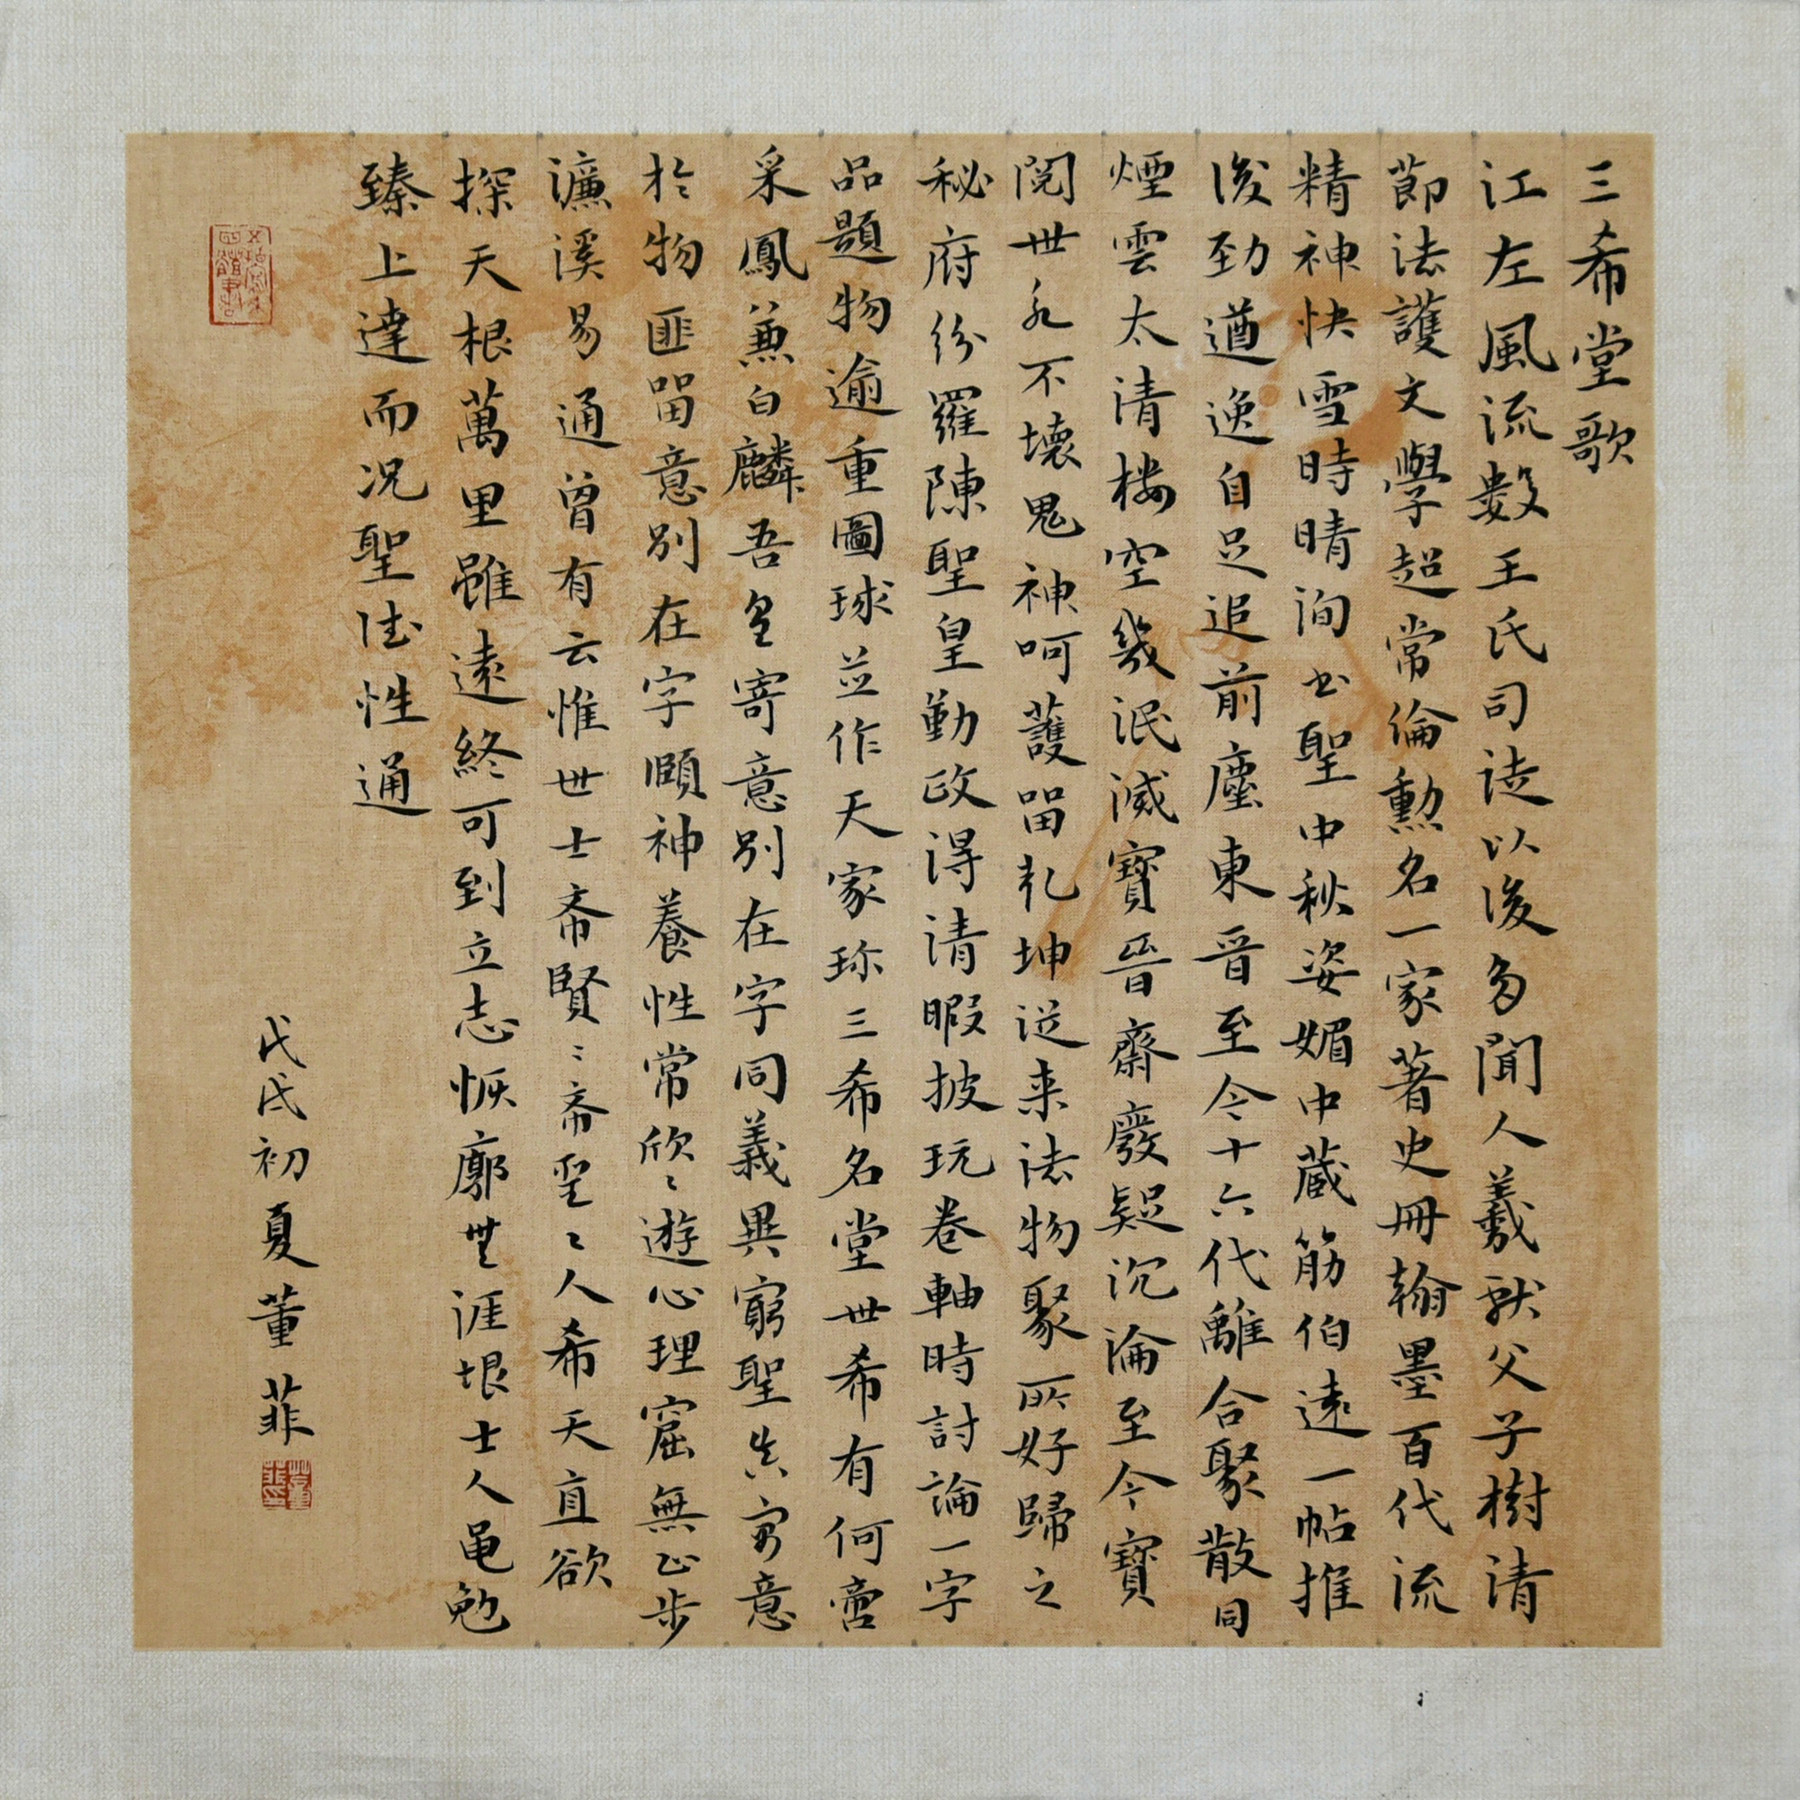 三希堂歌
江左風流數王氏司徒以後多聞人羲獻父子樹清
節法護文學超常倫勳名一家著史冊翰墨百代流
精神快雪時晴洵書聖中秋姿媚中藏筋伯遠一帖推
後勁遒逸自足追前塵東晉至今十六代離合聚散同
煙雲太清樓空幾泯滅寶晉齋廢疑沉淪至今寶
閱世永不壞鬼神呵護留乾坤從來法物聚所好歸之
秘府紛羅陳聖皇勤政得清暇披玩卷軸時討論一字
品題物逾重圖球並作天家珍三希名堂世希有何啻
采鳳兼白麟吾皇寄意別在字同義異窮聖真寄意
於物匪留意別在字頤神養性常欣〻遊心理窟無止步
濂溪易通曾有云惟世士希賢〻希聖〻人希天直欲
探天根萬里雖遠終可到立志恢廓無涯垠士人黽勉
臻上達而況聖德性通
戊戌初夏董菲